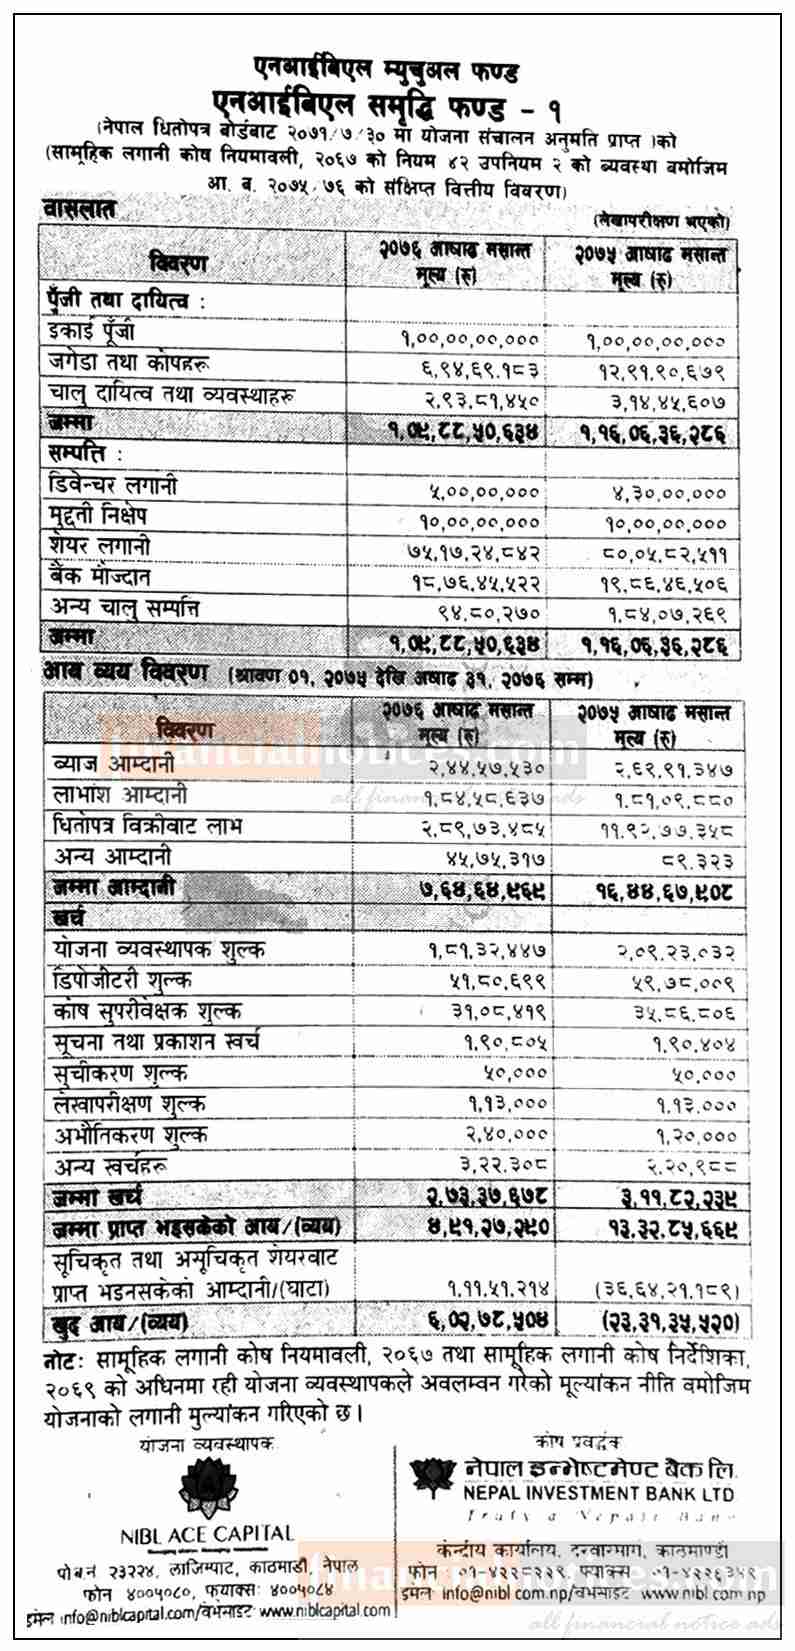 एनआईबिएल म्युचुअल फण्ड
एनआईबिएल समृद्धि फण्ड - १
(नेपाल धितोपत्र बोर्डबाट २०७१/७/३० मा योजना संचालन अनुमति प्राप्त )को
(सामूहिक लगानी कोष नियमावली, २०६७ को नियम ४२ उपनियम २ को ब्यवस्था बमोजिम
आ. ब. २०७५/७६ को संक्षिप्त वित्तीय विवरण)
वासलात
(लेखापरीक्षण भएको)
विवरण २०७६ आषाढ मसान्त मूल्य (रु) २०७५ आषाढ मसान्त मूल्य (रु)
पुँजी तथा दायित्व :
इकाई पूँजी १,००,००,००,००० १,००,००,००,०००
जगेडा तथा कोषहरू ६,९४,६९,१८३ १२,९१,९०,६७९
चालु दायित्व तथा व्यवस्थाहरू २,९३,८१,४५० ३,१४,४५,६०७
जम्मा १,०९,८८,५०,६३४ १,१६,०६,३६,२८६
सम्पत्ति :
डिवेन्चर लगानी ५,००,००,००० ४,३०,००,०००
मुद्दती निक्षेप १०,००,००,००० १०,००,००,०००
शेयर लगानी ७५,१७,२४,८४२ ८०,०५,८२,५११
बैंक मौज्दात १८,७६,४५,५२२ १९,८६,४६,५०६
अन्य चालु सम्पत्ति ९४,८०,२७० १,८४,०७,२६९
जम्मा १,०९,८८,५०,६३४ १,१६,०६,३६,२८६
आय व्यय विवरण (श्रावण ०१, २०७५ देखि अषाढ ३१, २०७६ सम्म)
विवरण २०७६ आषाढ मसान्त मूल्य (रु) २०७५ आषाढ मसान्त मूल्य (रु)
ब्याज आम्दानी २,४४,५७,५३० २,६९,९१,३४७
लाभांश आम्दानी १,८४,५८,६३७ १,८१,०९,८८०
धितोपत्र विक्रीबाट लाभ २,८९,७३,४८५ ११,९२,७७,३५८
अन्य आम्दानी ४५,७५,३१७ ८९,३२३
जम्मा आम्दानी ७,६४,६४,९६९ १६,४४,६७,९०८
खर्च
योजना व्यवस्थापक शुल्क १,८१,३२,४४७ २,०९,२३,०३२
डिपोजीटरी शुल्क ५१,८०,६९९ ५९,७८,००९
कोष सुपरीवेक्षक शुल्क ३१,०८,४१९ ३५,८६,८०६
सूचना तथा प्रकाशन खर्च १,९०,८०५ १,९०,४०४
सुचीकरण शुल्क ५०,००० ५०,०००
लेखापरीक्षण शुल्क १,१३,००० १,१३,०००
अभौतिकरण शुल्क २,४०,००० १,२०,०००
अन्य खर्चहरू ३,२२,३०८ २,२०,९८८
जम्मा खर्च २,७३,३७,६७८ ३,११,८२,२३९
जम्मा प्राप्त भइसकेको आय/(व्यय) ४,९१,२७,२९० १३,३२,८५,६६९
सूचिकृत तथा असूचिकृत शेयरबाट
प्राप्त भइनसकेको आम्दानी/(घाटा) १,११,५१,२१४ (३६,६४,२१,१८९)
खुद आय/(व्यय) ६,०२,७८,५०४ (२३,३१,३५,५२०)
नोट: सामूहिक लगानी कोष नियमावली, २०६७ तथा सामूहिक लगानी कोष निर्देशिका,
२०६९ को अधिनमा रही योजना व्यवस्थापकले अवलम्वन गरेको मूल्यांकन नीति बमोजिम
योजनाको लगानी मुल्यांकन गरिएको छ।
योजना व्यवस्थापक
NIBL ACE CAPITAL
पो.ब.नं. २३२२४, लाजिम्पाट, काठमाडौं, नेपाल
फोन ४००५०८०, फ्याक्सः ४००५०८४
इमेल info@niblcapital.com/वेभसाइट www.niblcapital.com
कोष प्रवर्द्धक
नेपाल इन्भेष्टमेण्ट बैंक लि.
NEPAL INVESTMENT BANK LTD
Truly a Nepali Bank
केन्द्रीय कार्यालय, दरबारमार्ग, काठमाण्डौ
फोन ०१-४२२८२२९ फ्याक्स ०१-४२२६३४९
इमेल info@nibl.com.np/वेभसाइट www.nibl.com.np
financialnotices.com
all financial notice ads